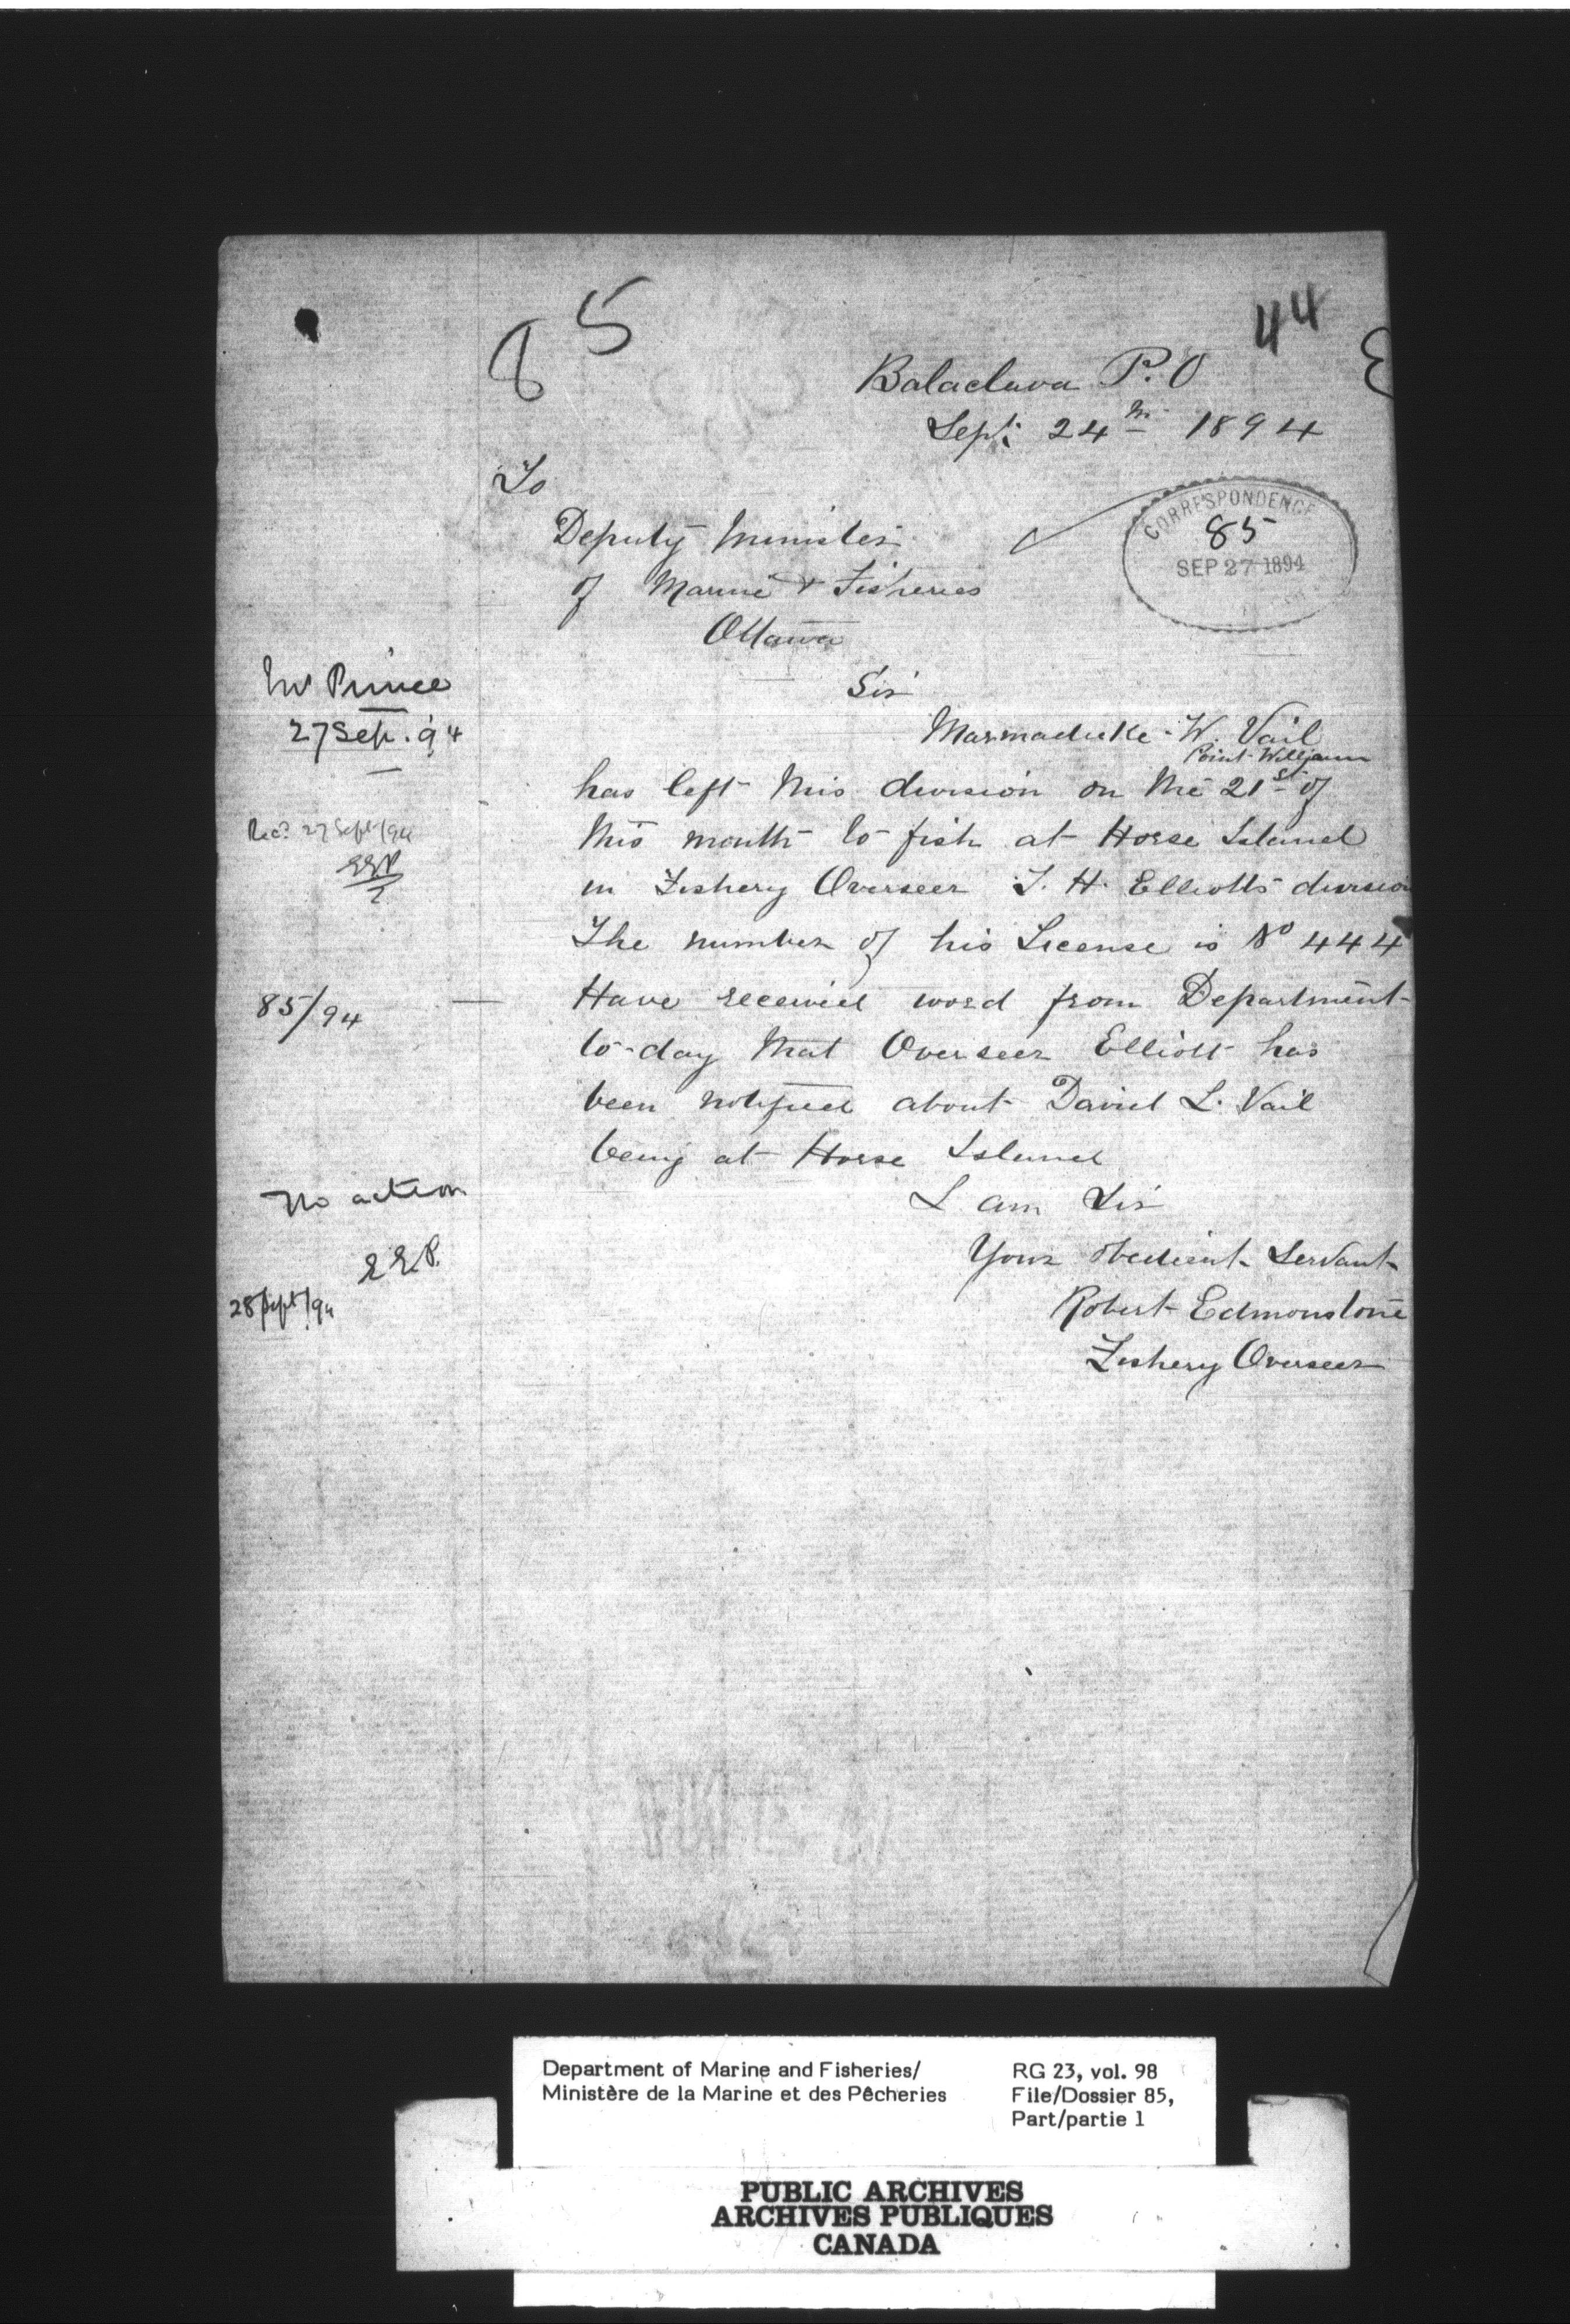 85
44
Balaclava P.O
Sept: 24th 1894
To
Deputy Minister
of Marine & Fisheries
Ottawa
CORRESPONDENCE
85
SEP 27 1894
Sir
Marmaduke W. Vail
Point William
has left this division on the 21st of
this month to fish at Horse Island
in Fishery Overseer J. H. Elliotts division
The number of his License is No 444
Have received word from Department
to-day that Overseer Elliott has
been notified about David L. Vail
being at Horse Island
I am Sir
Your obedient Servant
Robert Edmonstone
Fishery Overseer
Mr Prince
27 Sep. 94
Recd 27 Sept/94
EEP
85/94
No action
EEP.
28/Sept/94
Department of Marine and Fisheries/
Ministère de la Marine et des Pêcheries
RG 23, vol. 98
File/Dossier 85,
Part/partie 1
PUBLIC ARCHIVES
ARCHIVES PUBLIQUES
CANADA